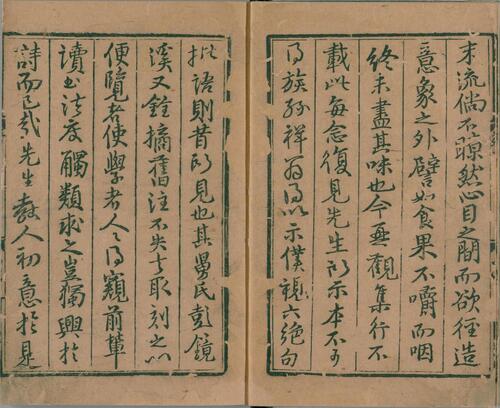 末流倘不瞭然心目之間而欲徑造
意象之外譬如食果不嚼而咽
終未盡其味也今興觀集行不
載此每念復見先生所示本不可
得族孫祥翁得以示僕視六絕句
批語則昔所見也其舅氏彭鏡
溪又銓摘舊注不失去取刻之以
便覽者使學者人〻得窺前輩
讀書法度觸類求之豈獨興於
詩而已哉先生教人初意於是